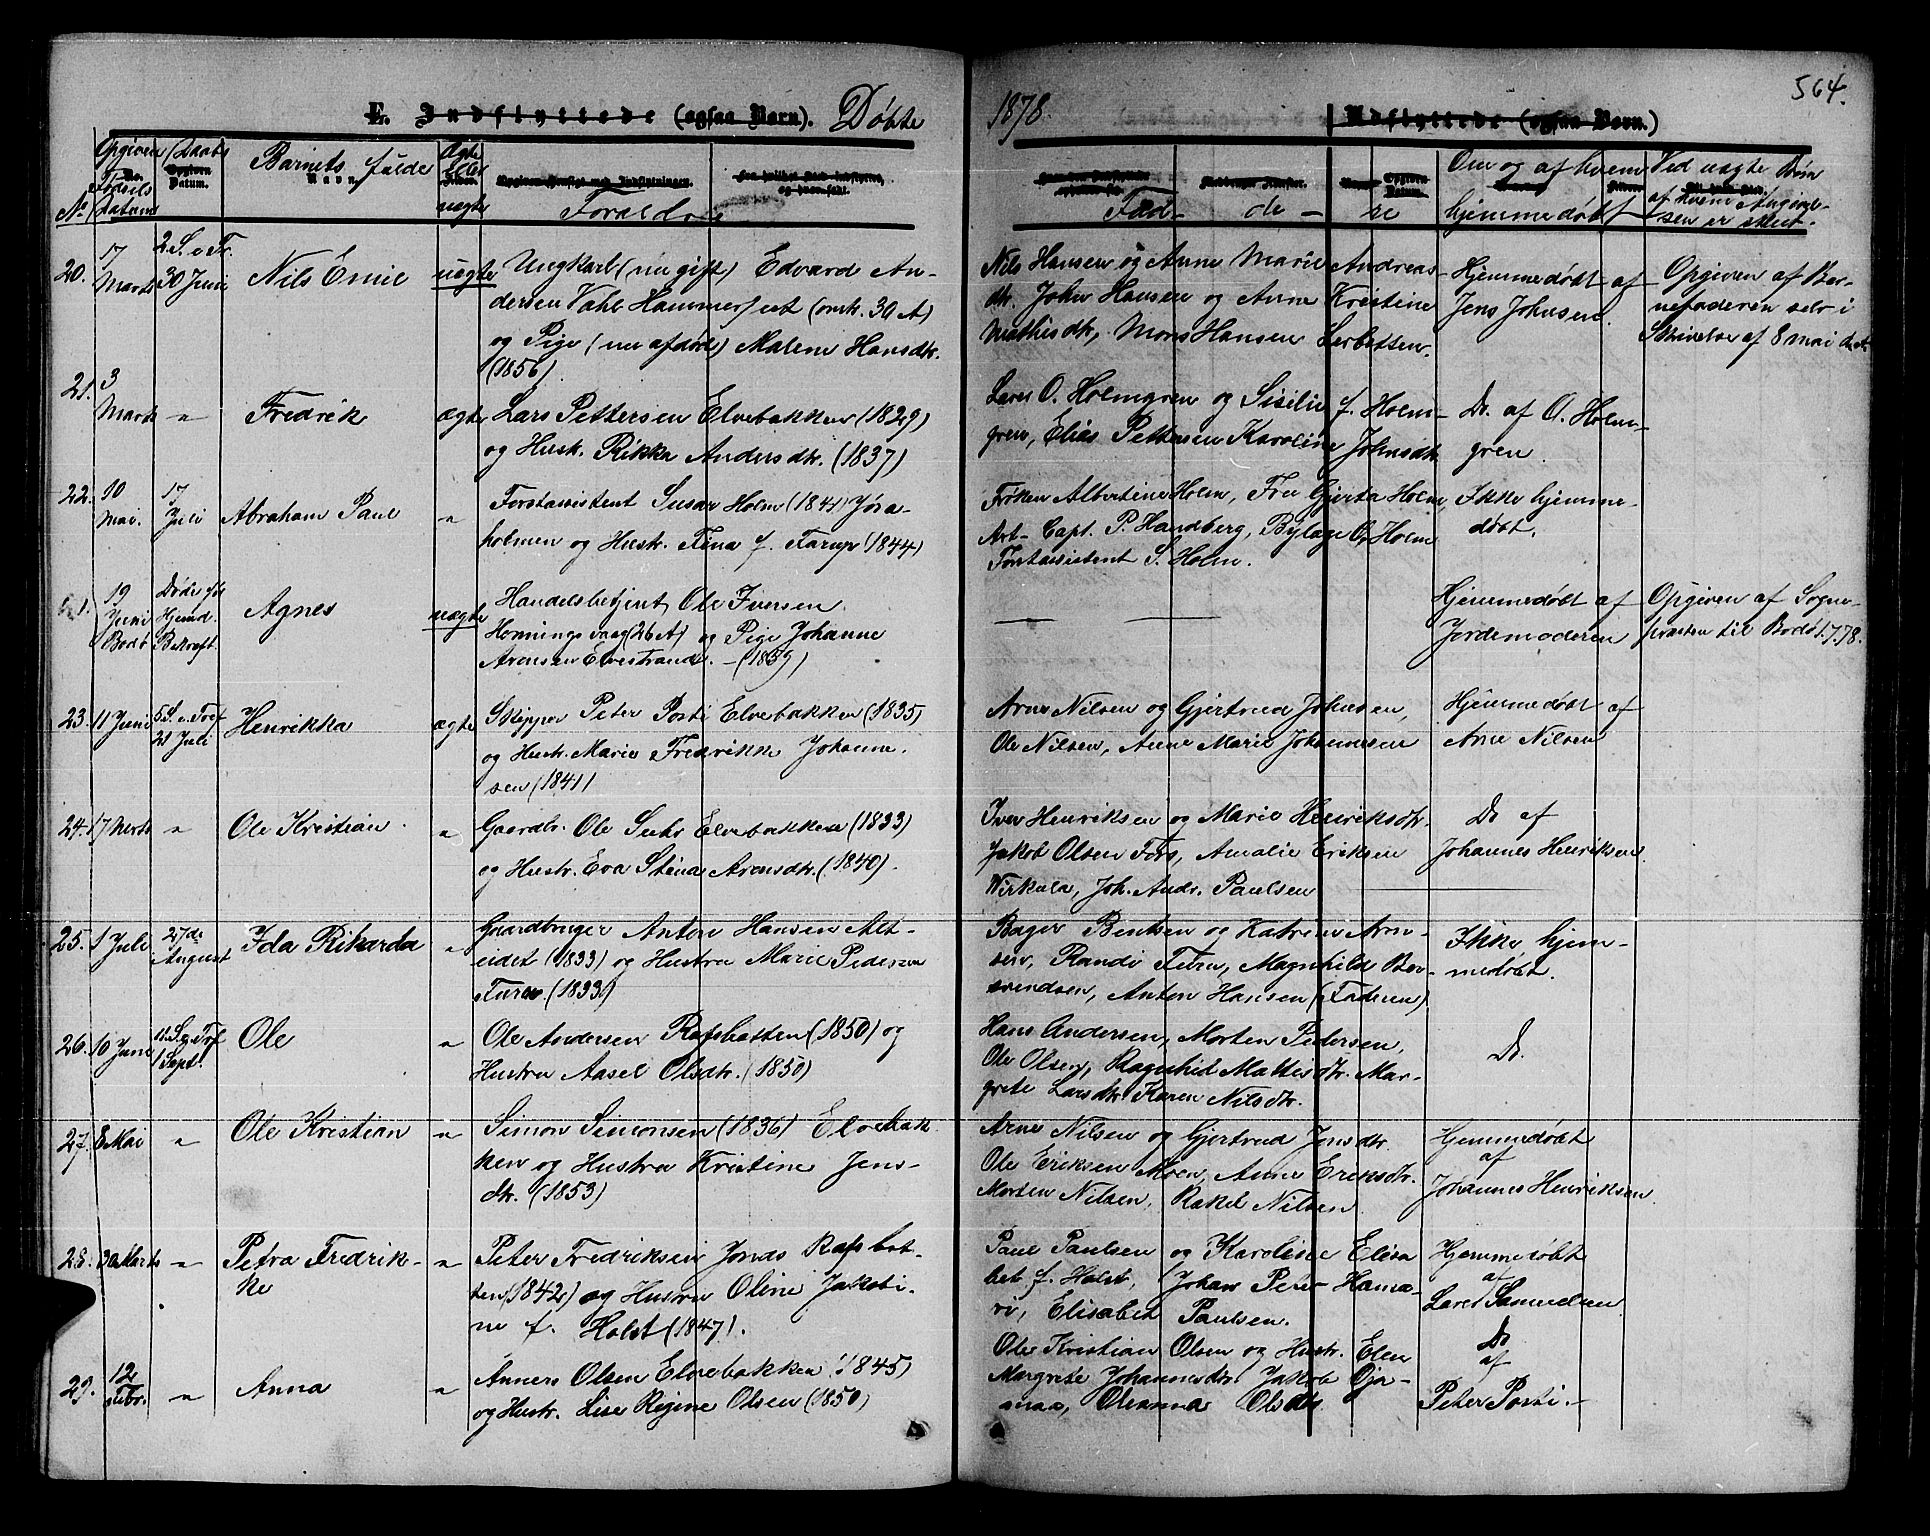 564.
E. Indflyttede (ogsaa Børn). Døbte
1878.
Udflyttede (ogsaa Børn.)
No
Opgiven Fødsels Datum
Daabs Datum.
Barnets fulde Navn
Ægte eller uægte
Forældre
Fad- de- re
Om og af hvem hjemmedøbt
Ved uægte Børn af hvem Angivelsen er skeet.
20.
17 Marts
2.S. e. Tr. 30 Juni
Nils Emil
uægte
Ungkarl (nu gift) Edvard An-
dersen Vahl Hammerfest (omk. 30 A)
og Pige (nu afdød) Malene Hansdtr.
(1856)
Nils Hansen og Anne Marie Andreas-
dtr. John Hansen og Anne Kristine
Mathisdtr, Mons Hansen
Hjemmedøbt af
Jens Johnsen.
Opgiven af Bar-
nefaderen selv i
Skrivelse af 8 mai
21.
3 Marts
"
Fredrik
ægte
Lars Pettersen Elvebakken (1829)
og Hustr. Rikka Andersdtr. (1837)
Lars O. Holmgren og Sisilie f. Holm-
gren, Elias Pettersen Karoline Johnsdtr.
Do. af O. Holm-
gren.
22.
10 Mai.
17 Juli
Abraham Paul
"
Forstassistent Susar Holm (1841) Jøra-
holmen og Hustr. Fina f. Farup (1844)
Frøken Albertine Holm, Fru Gjerta Holm,
Art. Capt. P. Handberg, Byloge O. Holm
Forstassistent S. Holm.
Ikke hjemme-
døbt.
19 Juni Bodø
Døde før Hjemd. Bekræft.
Agnes
uægte
Handelsbetjent Ole Iversen
Honningsvaag (26 A) og Pige Johanne
Aronsen Elvestrand. - (1859)
Hjemmedøbt af
Jordemoderen
Opgiven af Sogne-
præsten til Bodø 1.7.78.
23.
11 Juni
5.S. e. Tref 21 Juli
Henrikka
ægte
Skipper Peter Posti Elvebakken (1835)
og Hustr. Marie Fredrikke Johanne-
sen (1841)
Arne Nilsen og Gjertrud Johnsen,
Ole Nilsen, Anne Marie Johannesen
Hjemmedøbt af
Arne Nilsen
24.
17 Marts
"
Ole Kristian
"
Gaardbr. Ole Suhr Elvebakken (1833)
og Hustr. Eva Stina Aronsdtr. (1840).
Iver Henriksen og Marie Henriksdtr.
Jakob Olsen Fors, Amalie Eriksen
Wirkula, Joh. Andr. Paulsen
Do af
Johannes Henriksen.
25.
1 Juli
27de August
Ida Rikarda
"
Gaardbruger Anton Hansen Alt-
eidet (1833) og Hustru Marie Pedersen
Furu. (1833)
Bager Bentsen og Katrine Arn-
sen, Randi Furu, Magnhild Ber-
svendsen, Anton Hansen (Faderen)
Ikke hjem-
medøbt.
26.
10 Juni
11.S.e.Tref 1 Sept.
Ole
"
Ole Andersen Rafsbotten (1850) og
Hustru Aasel Olsdtr. (1850)
Hans Andersen, Morten Pedersen,
Ole Olsen, Ragnhild Mathisdtr. Mar-
grete Larsdtr Karen Nilsdtr.
Do.
27.
8 Mai
"
Ole Kristian
"
Simon Simonsen (1836) Elvebak-
ken og Hustru Kristine Jens-
dtr. (1853)
Arne Nilsen og Gjertrud Jonsdtr.
Ole Eriksen Moen, Anne Eriksdtr.
Morten Nilsen, Rakel Nilsen
Hjemmedøbt
af
Johannes Henriksen.
28.
30 Marts
"
Petra Fredrik-
ke
"
Peter Fredriksen Jonds Rafsbot-
ten (1842) og Hustru Oline Jakobi-
ne f. Holst (1847).
Paul Paulsen og Karoline Elisa
bet f. Holst, Johan Peter Hama-
ri, Elisabet Paulsen.
Hjemmedøbt
af
Lars Samuelsen.
29.
12 Febr.
"
Anna
"
Anners Olsen Elvebakken (1845)
og Hustr. Lise Regine Olsen (1850)
Ole Kristian Olsen og Hustr. Elen
Margrete Johannesdtr Jakob Ojar-
maa, Oleanna Olsdtr
Do
af
Peter Posti.-